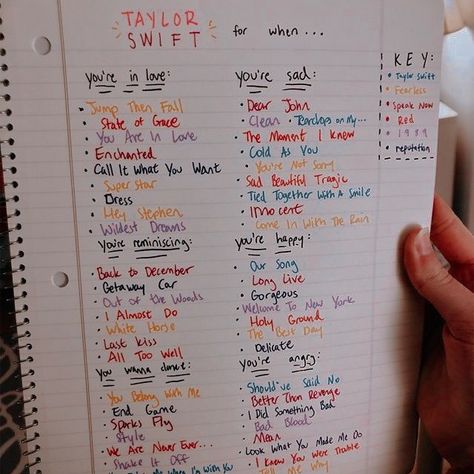 TAYLOR
SWIFT for when ...
KEY:
• Taylor Swift
• Fearless
• Speak Now
• Red
• 1989
• reputation
you're in love:
• Jump Then Fall
• State of Grace
• You Are In Love
• Enchanted
• Call It What You Want
• Superstar
• Dress
• Hey Stephen
• Wildest Dreams
you're reminiscing:
• Back to December
• Getaway Car
• Out of the Woods
• I Almost Do
• White Horse
• Last kiss
• All Too Well
you wanna dance:
• You Belong With Me
• End Game
• Sparks Fly
• Style
• We Are Never Ever...
• Shake It Off
When I'm With You
you're sad:
• Dear John
• Clean • Teardrops on My...
• The Moment I Knew
• Cold As You
• You're Not Sorry
• Sad Beautiful Tragic
• Tied Together With A Smile
• Innocent
• Come In With The Rain
you're happy:
• Our Song
• Long Live
• Gorgeous
• Welcome To New York
• Holy Ground
• The Best Day
• Delicate
you're angry:
• Should've Said No
• Better Than Revenge
• I Did Something Bad
• Bad Blood
• Mean
• Look What You Made Me Do
• I Knew You Were Trouble
Me Why